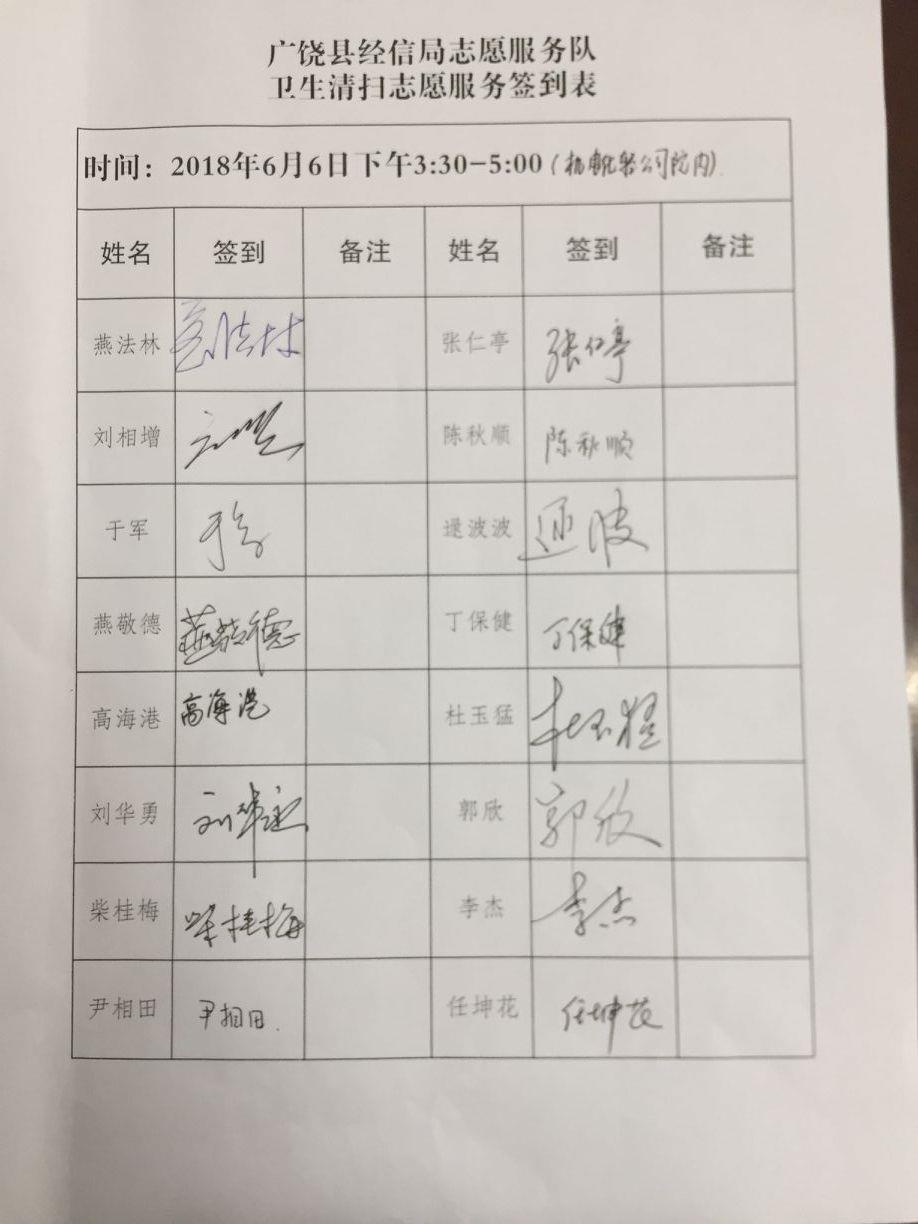 广饶县经信局志愿服务队
卫生清扫志愿服务签到表
时间：2018年6月6日下午3:30-5:00（公司院内）
姓名 签到 备注 姓名 签到 备注
燕法林 燕法林 张仁亭 张仁亭
刘相增 陈秋顺 陈秋顺
于军 于军 逯波波 逯波
燕敬德 燕敬德 丁保健 丁保健
高海港 高海港 杜玉猛 杜玉猛
刘华勇 刘华勇 郭欣 郭欣
柴桂梅 柴桂梅 李杰 李杰
尹相田 尹相田 任坤花 任坤花